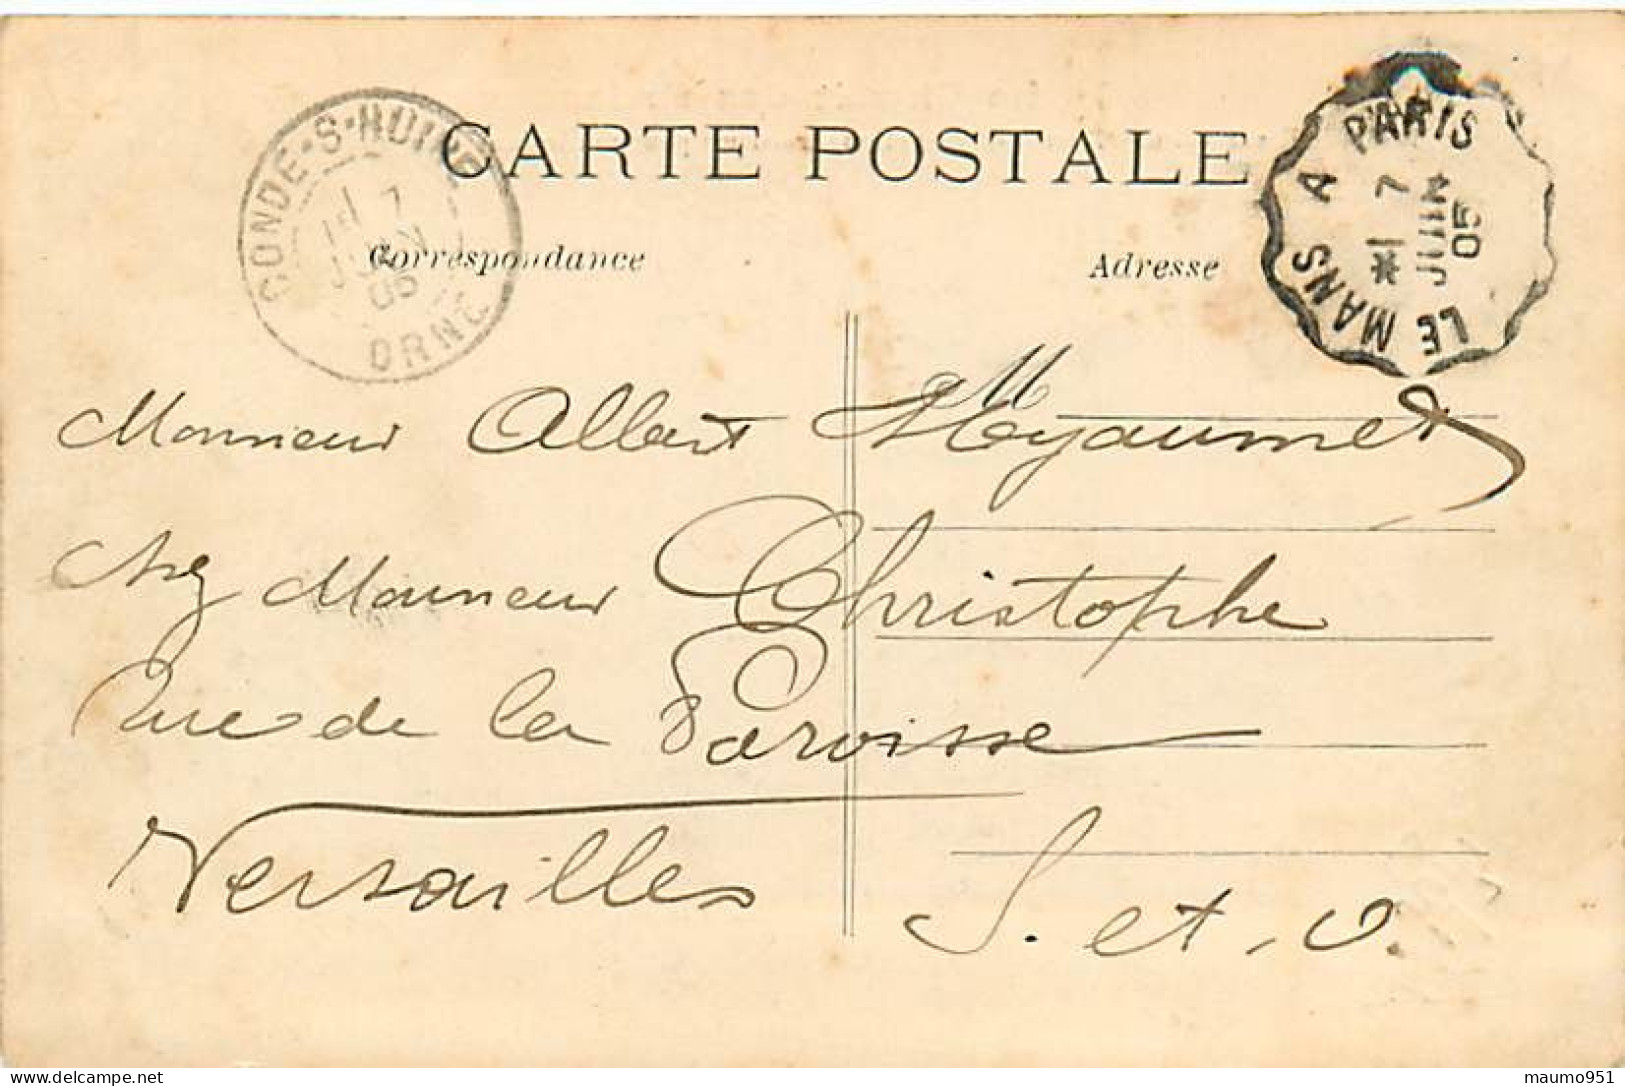 CARTE POSTALE
CONDE-S-HUISNE
7
JUIN
05
ORNE
LE MANS A PARIS
1 7
JUIN
05
Correspondance
Adresse
Monsieur Albert Meyaumet
chez Monsieur Christophe
Rue de la Paroisse
Versailles
S. et. O.
delcampe.net
maumo951